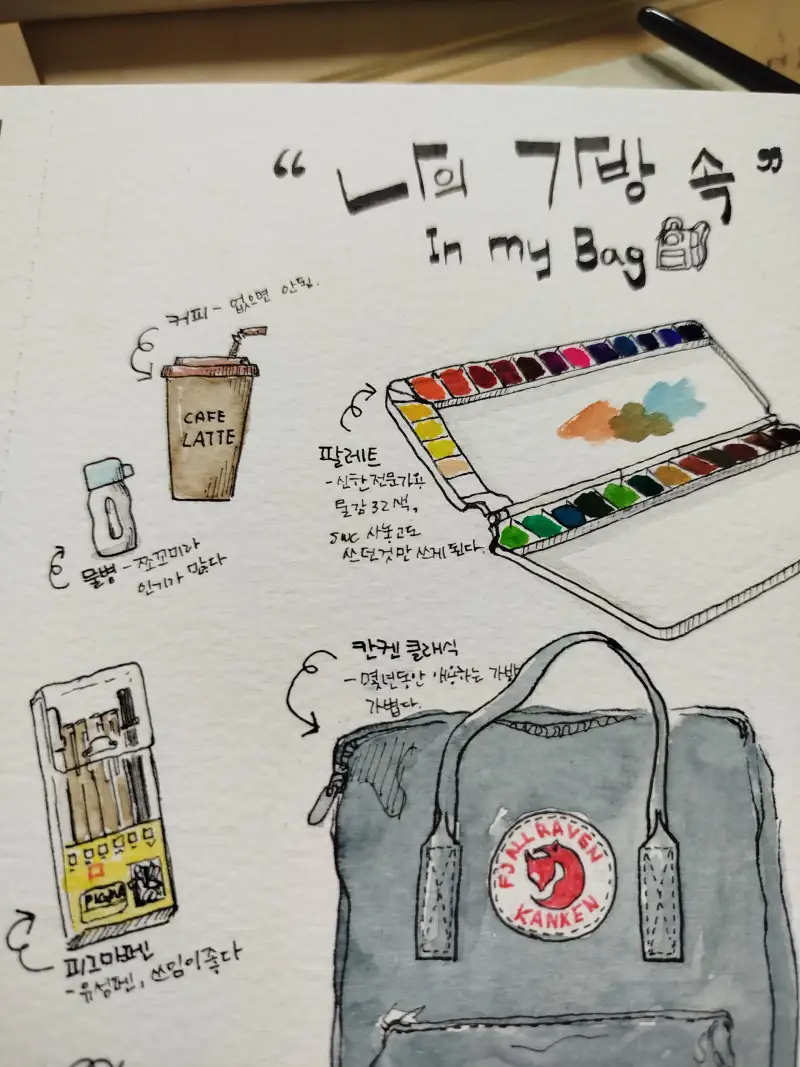 “ 나의 가방 속 ”
In my Bag
커피 - 없으면 안돼.
CAFE
LATTE
팔레트
- 신한전문가용
물감 32색,
SWC 사놓고도
쓰던것만 쓰게 된다.
물병 - 쪼꼬미라
인기가 많다
칸켄 클래식
- 몇년동안 애용하는 가방
가볍다.
FJALLRAVEN
KANKEN
PIGMA
피그마펜
- 유성펜, 쓰임이 좋다